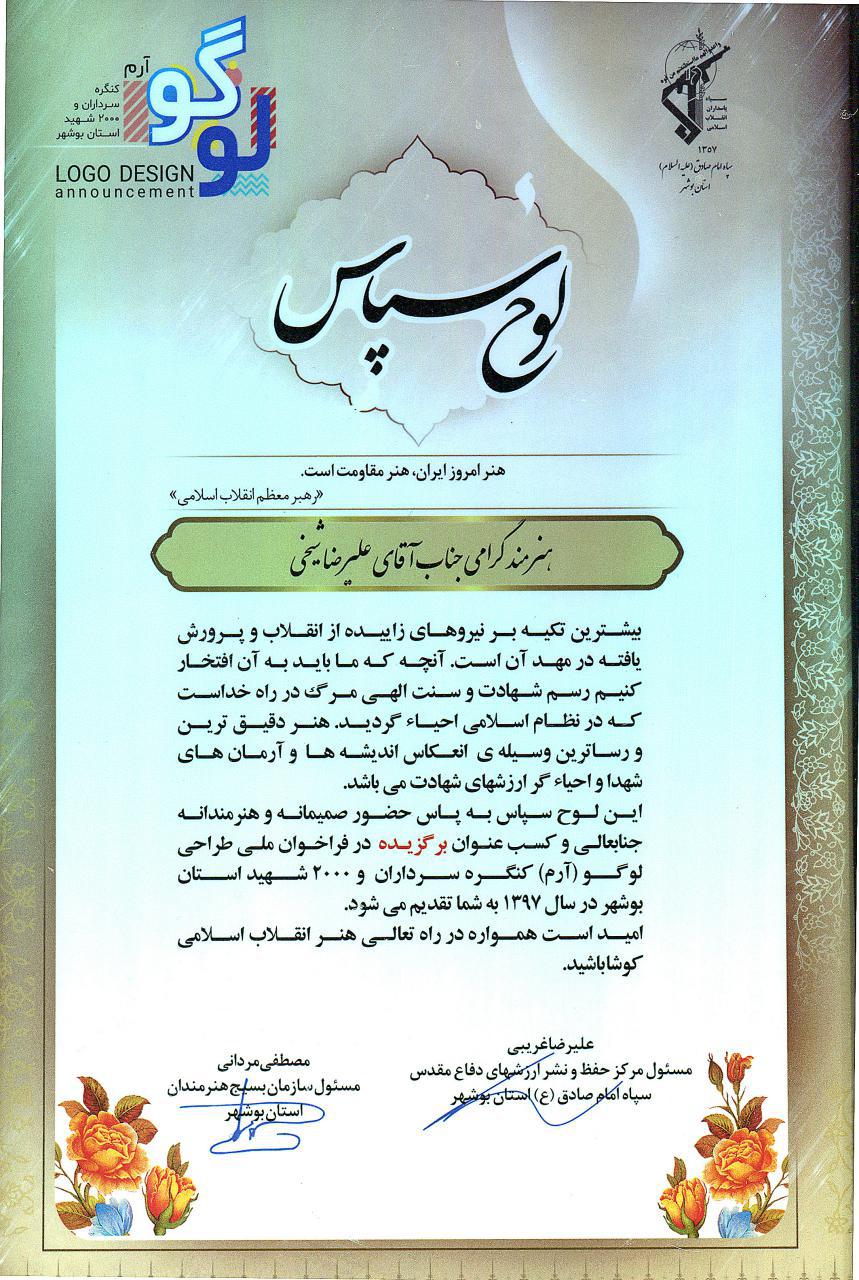 آرم
لوگو
کنگره
سرداران و
۲۰۰۰ شهید
استان بوشهر
LOGO DESIGN
announcement
سپاه
پاسداران
انقلاب
اسلامی
۱۳۵۷
سپاه امام صادق (علیه السلام)
استان بوشهر
لوح سپاس
هنر امروز ایران، هنر مقاومت است.
«رهبر معظم انقلاب اسلامی»
هنرمند گرامی جناب آقای علیرضا شیخی
بیشترین تکیه بر نیروهای زاییده از انقلاب و پرورش
یافته در مهد آن است. آنچه که ما باید به آن افتخار
کنیم رسم شهادت و سنت الهی مرگ در راه خداست
که در نظام اسلامی احیاء گردید. هنر دقیق ترین
و رساترین وسیله ی انعکاس اندیشه ها و آرمان های
شهدا و احیاء گر ارزشهای شهادت می باشد.
این لوح سپاس به پاس حضور صمیمانه و هنرمندانه
جنابعالی و کسب عنوان برگزیده در فراخوان ملی طراحی
لوگو (آرم) کنگره سرداران و ۲۰۰۰ شهید استان
بوشهر در سال ۱۳۹۷ به شما تقدیم می شود.
امید است همواره در راه تعالی هنر انقلاب اسلامی
کوشا باشید.
علیرضا غریبی
مسئول مرکز حفظ و نشر ارزشهای دفاع مقدس
سپاه امام صادق (ع) استان بوشهر
مصطفی مردانی
مسئول سازمان بسیج هنرمندان
استان بوشهر